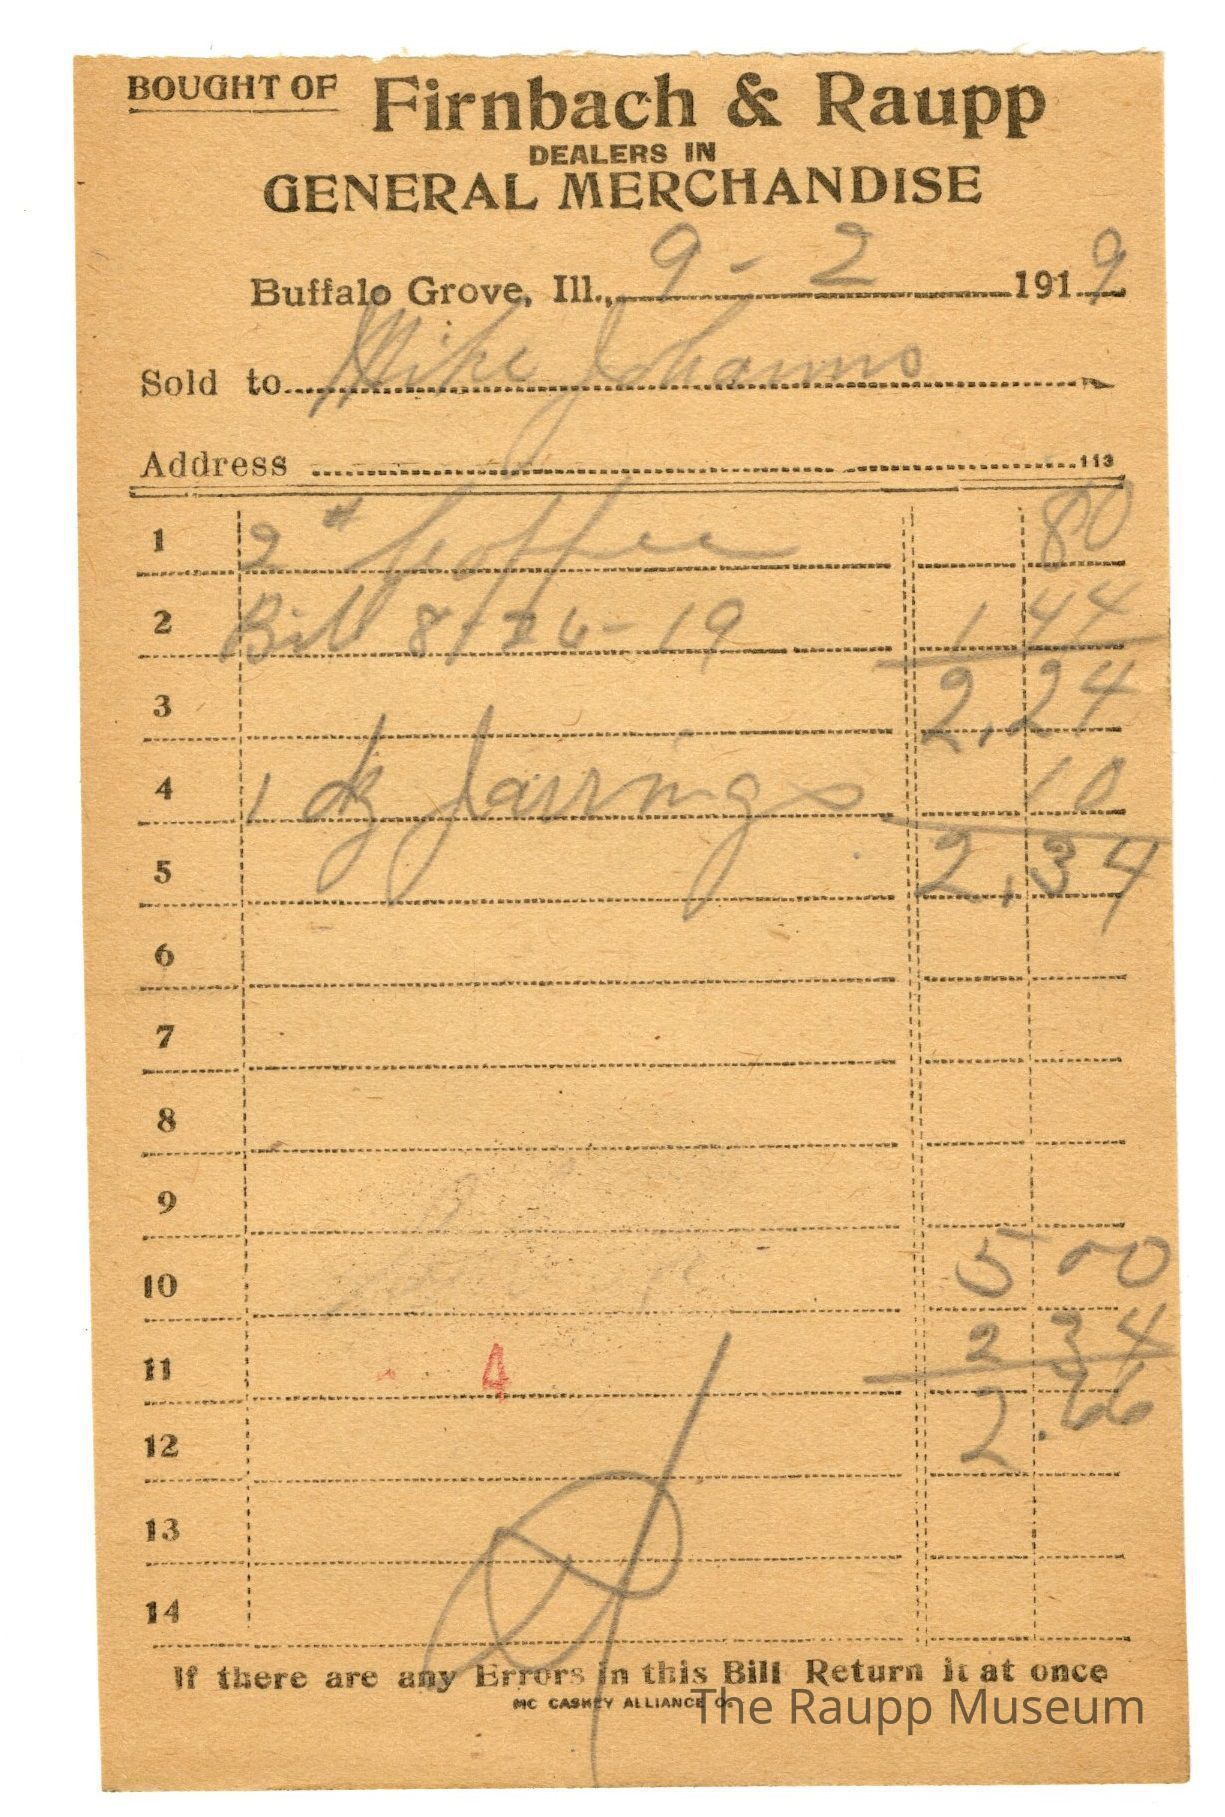 BOUGHT OF Firnbach & Raupp
DEALERS IN
GENERAL MERCHANDISE
Buffalo Grove, Ill., 9 - 2 1919
Sold to Mike Johanns
Address 113
1 2 # Coffee 80
2 Bill 8-26-19 1 44
3 2.24
4 1 dz Jarrings 10
5 2.34
6
7
8
9
10 5 00
11 4 2 34
12 2.66
13
14
If there are any Errors in this Bill Return it at once
MC CASKEY ALLIANCE O.
The Raupp Museum